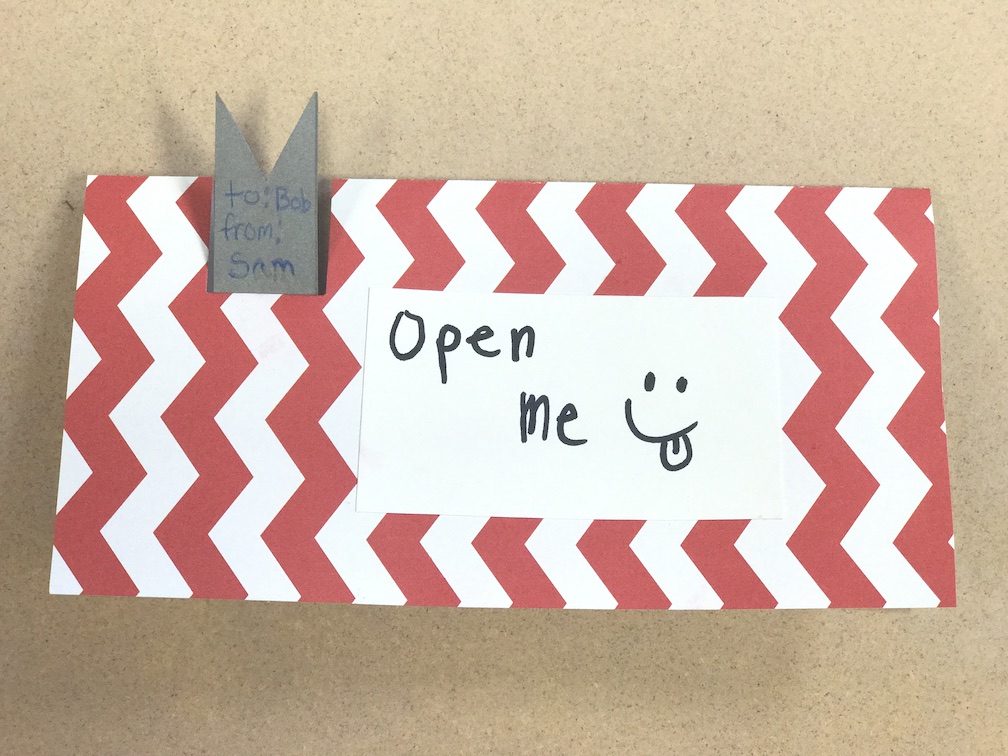 to: Bob
from:
Sam
Open
me